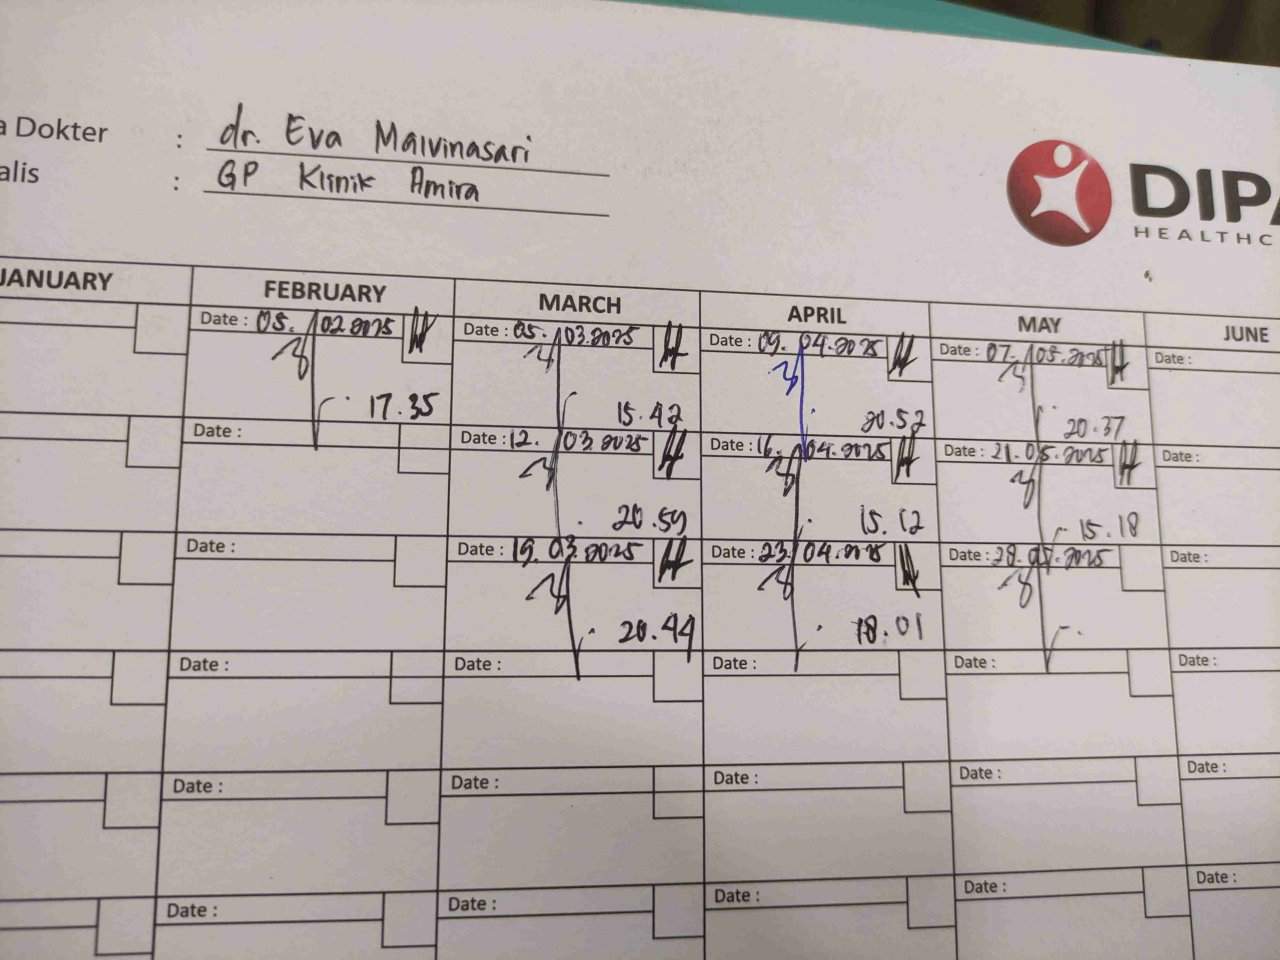 a Dokter : dr. Eva Malvinasari
alis : GP Klinik Amira
DIPA
HEALTHC
JANUARY FEBRUARY MARCH APRIL MAY JUNE
Date : 05. 02.2025 Date : 05. 03.2025 Date : 09. 04.2025 Date : 07. 05.2025 Date :
17.35 15.42 20.52 20.37
Date : Date : 12. 03.2025 Date : 16. 04.2025 Date : 21.05.2025 Date :
20.59 15.12 15.18
Date : Date : 19.03.2025 Date : 23. 04.2025 Date : 28.05.2025 Date :
20.44 18.01
Date : Date : Date : Date : Date :
Date : Date : Date : Date : Date :
Date : Date : Date : Date : Date :